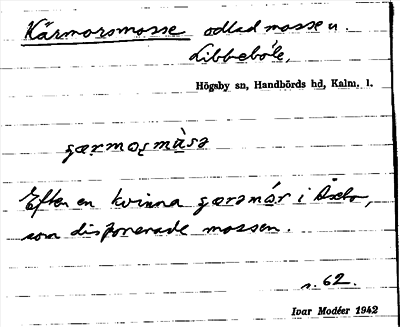 Kärmorsmosse odlad mosse u.
Libbeböle,
Högsby sn, Handbörds hd, Kalm. l.
særmormàsə
Efter en kvinna særəmór i Åsebo,
som disponerade mossen.
s. 62.
Ivar Modéer 1942